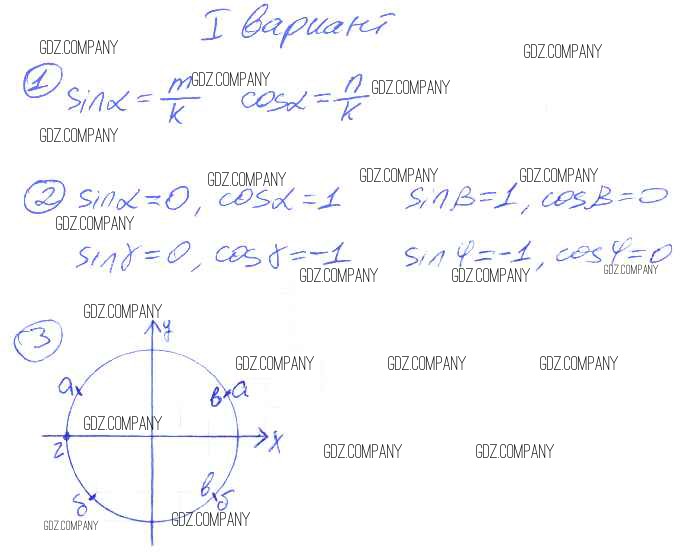 I вариант
GDZ.COMPANY GDZ.COMPANY
1 sinα = m/k cosα = n/k
GDZ.COMPANY GDZ.COMPANY
GDZ.COMPANY
GDZ.COMPANY GDZ.COMPANY GDZ.COMPANY
2 sinα=0, cosα=1 sinβ=1, cosβ=0
GDZ.COMPANY
sinγ=0, cosγ=-1 sinφ=-1, cosφ=0
GDZ.COMPANY GDZ.COMPANY GDZ.COMPANY
GDZ.COMPANY
3 y
GDZ.COMPANY GDZ.COMPANY GDZ.COMPANY
а в а
GDZ.COMPANY
г x
GDZ.COMPANY GDZ.COMPANY
б в б
GDZ.COMPANY GDZ.COMPANY